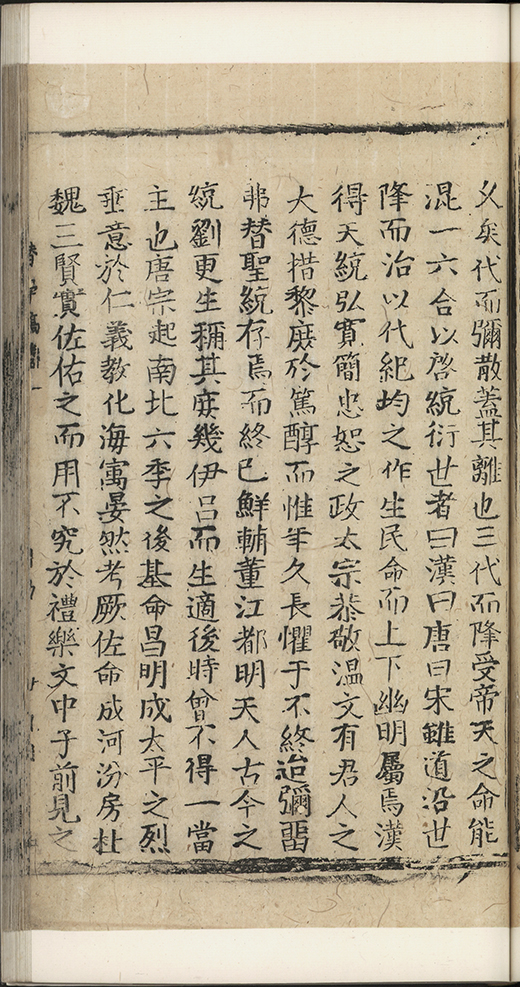 乆矣代而彌散蓋其離也三代而降受帝天之命能
混一六合以啓統衍世者曰漢曰唐曰宋雖道沿世
降而治以代紀均之作生民命而上下幽明屬焉漢
得天統弘寛簡忠恕之政太宗恭敬温文有君人之
大德措黎庻於篤醇而惟年久長懼于不終迨彌
弗替聖統存焉而終已鮮輔董江都明天人古今之
統劉更生稱其庻幾伊呂而生適後時曾不得一當
主也唐宗起南北六季之後基命昌明成太平之烈
垂意於仁義教化海寓晏然考厥佐命成河汾房杜
魏三賢實佐佑之而用不究於禮樂文中子前見之